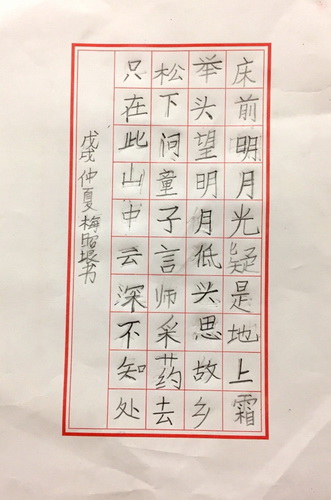 床前明月光疑是地上霜
举头望明月低头思故乡
松下问童子言师采药去
只在此山中云深不知处
戊戌仲夏梅昭垠书